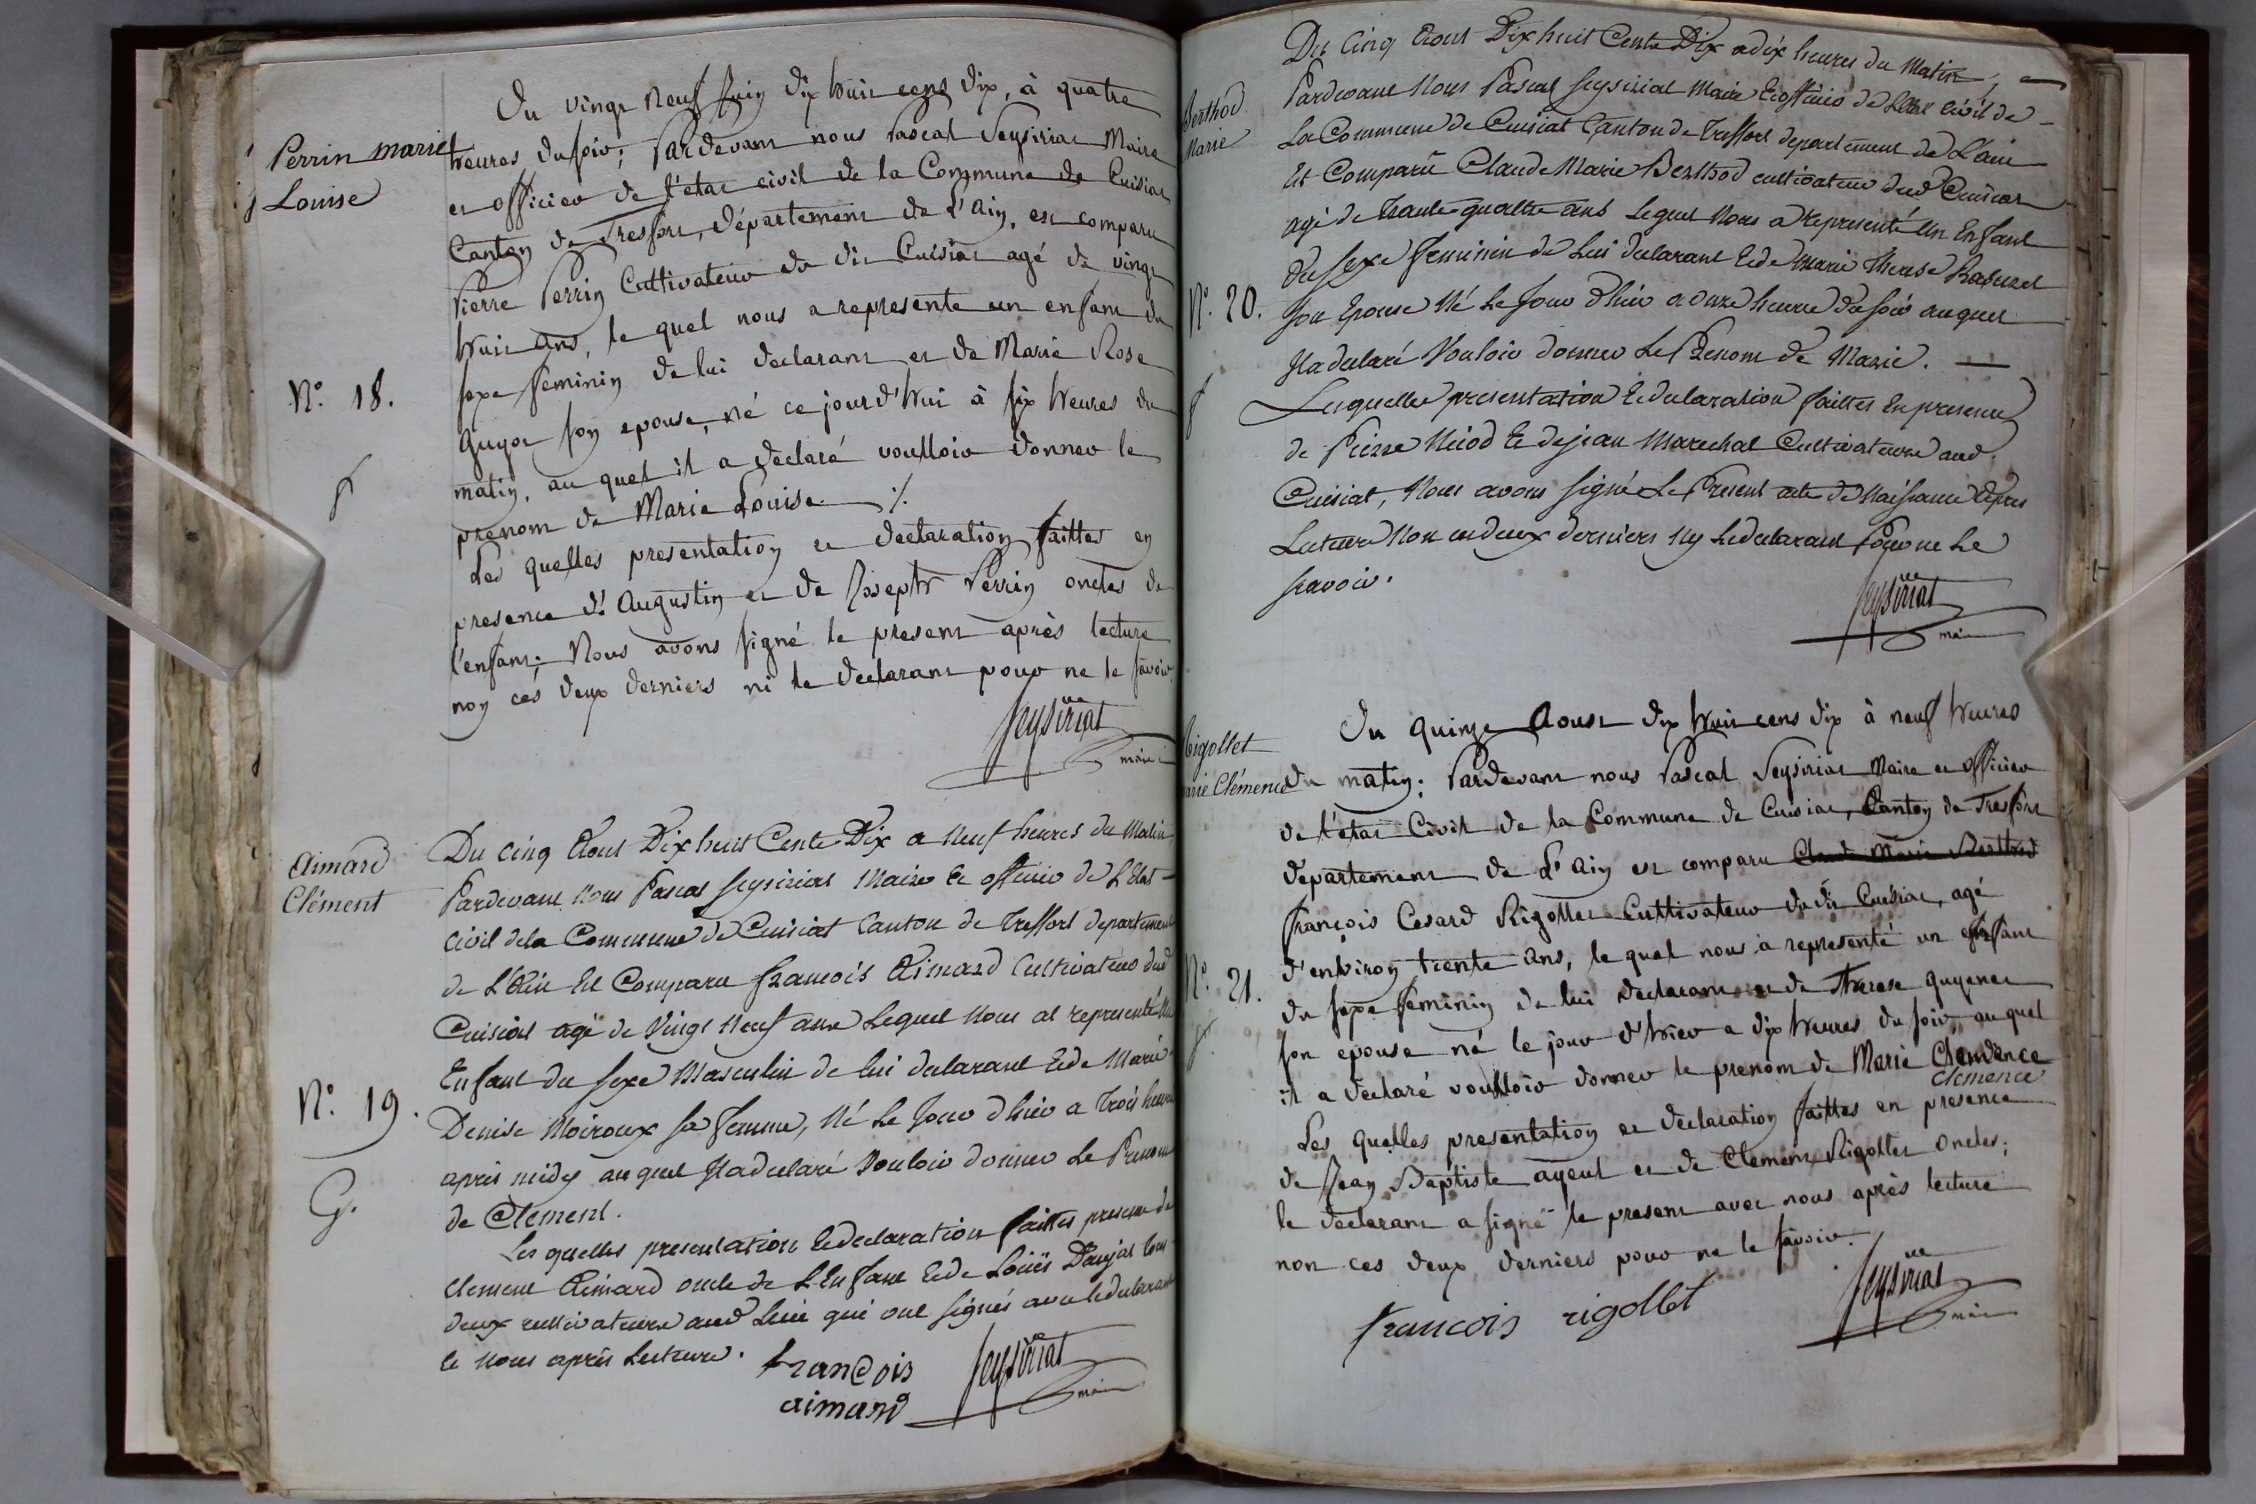 Perrin marie
Louise
Nº. 18.
Du vingt neuf Juin dix huit cent dix, à quatre
heures du soir; Pardevant nous Pascal Seysiriat Maire
et officier de l'état civil de la Commune de Cuisiat
Canton de Treffort, département de l'Ain, est comparu
Pierre Perrin Cultivateur du dit Cuisiat agé de vingt
huit ans, le quel nous a represente un enfant du
sexe feminin de lui declarant et de Marie Rose
Guyot son epouse, né ce jourd'hui à six heures du
matin, au quel il a declaré voulloir donner le
prenom de Marie Louise ./.
Les quelles presentation et declaration faittes en
presence d'Augustin et de Joseph Perrin oncles de
l'enfant; Nous avons signé le present après lecture
non ces deux derniers ni le declarant pour ne le savoir.
Seysiriat
maire
Aimard
Clément
Nº. 19.
G.
Du cinq Aout Dix huit Cent Dix a Neuf heures du Matin
Pardevant Nous Pascal Seysiriat Maire Et officier de L'Etat
Civil de la Commune de Cuisiat Canton de Treffort departement
de L'Ain Est Comparu françois Aimard Cultivateur dud
Cuisiat agé de Vingt Neuf ans Lequel Nous at representé Un
Enfant du sexe Masculin de lui declarant Et de Marie
Denise Moiroux sa femme, Né Le Jour d'hier a Trois heures
après midy auquel Il a declaré Vouloir donner Le Prenom
de Clement.
Les quelles presentation Et declaration faittes presence de
Clement Aimard oncle de L'Enfant Et de Loüis Daujat tous
deux cultivateurs aud Lieu qui ont signés avec le declarant
Et Nous après Lecture.
francois
aimard
Seysiriat
maire
Berthod
Marie
Nº. 20.
Du Cinq Aout Dix huit Cent Dix a dix heures du Matin,
Pardevant Nous Pascal Seysiriat Maire Et officier de L'Etat civil de
La Commune de Cuisiat Canton de Treffort departement de L'ain
Est Comparu Claude Marie Berthod cultivateur dud Cuisiat
agé de trante quattre ans Lequel Nous a representé Un Enfant
du sexe feminin de Lui declarant Et de Marie Therese
son Epouse Né Le Jour d'hier a onze heure du soir auquel
Il a declaré Vouloir donner Le Prenom de Marie.
Lesquelles presentation Et declaration faittes En presence
de Pierre Nicod Et de jean Marechal Cultivateurs aud
Cuisiat, Nous avons signé Le Present acte de Naissance après
Lecture Non ces deux derniers Ny Le declarant Pour ne Le
savoir.
Seysiriat
maire
Rigollet
Marie Clémence
Nº. 21.
Du quinze Aoust dix huit cens dix à neuf heures
du matin; Pardevant nous Pascal Seysiriat Maire et officier
de l'état Civil de la Commune de Cuisiat, Canton de Treffort
département de l'Ain est comparu Claude Marie Berthod
françois Cesard Rigollet Cultivateur du dit Cuisiat, agé
d'environ trente ans, le quel nous a representé un enfant
du sexe feminin de lui declarant et de Therese guyenet
son epouse né le jour d'hier a dix heures du soir, au quel
il a declaré voulloir donner le prenom de Marie Clemence
clemence
Les quelles presentation et declaration faittes en presence
de Jean Baptiste ayeul et de Clement Rigollet oncles;
le declarant a signé le present avec nous après lecture
non ces deux derniers pour ne le savoir.
francois rigollet
Seysiriat
maire